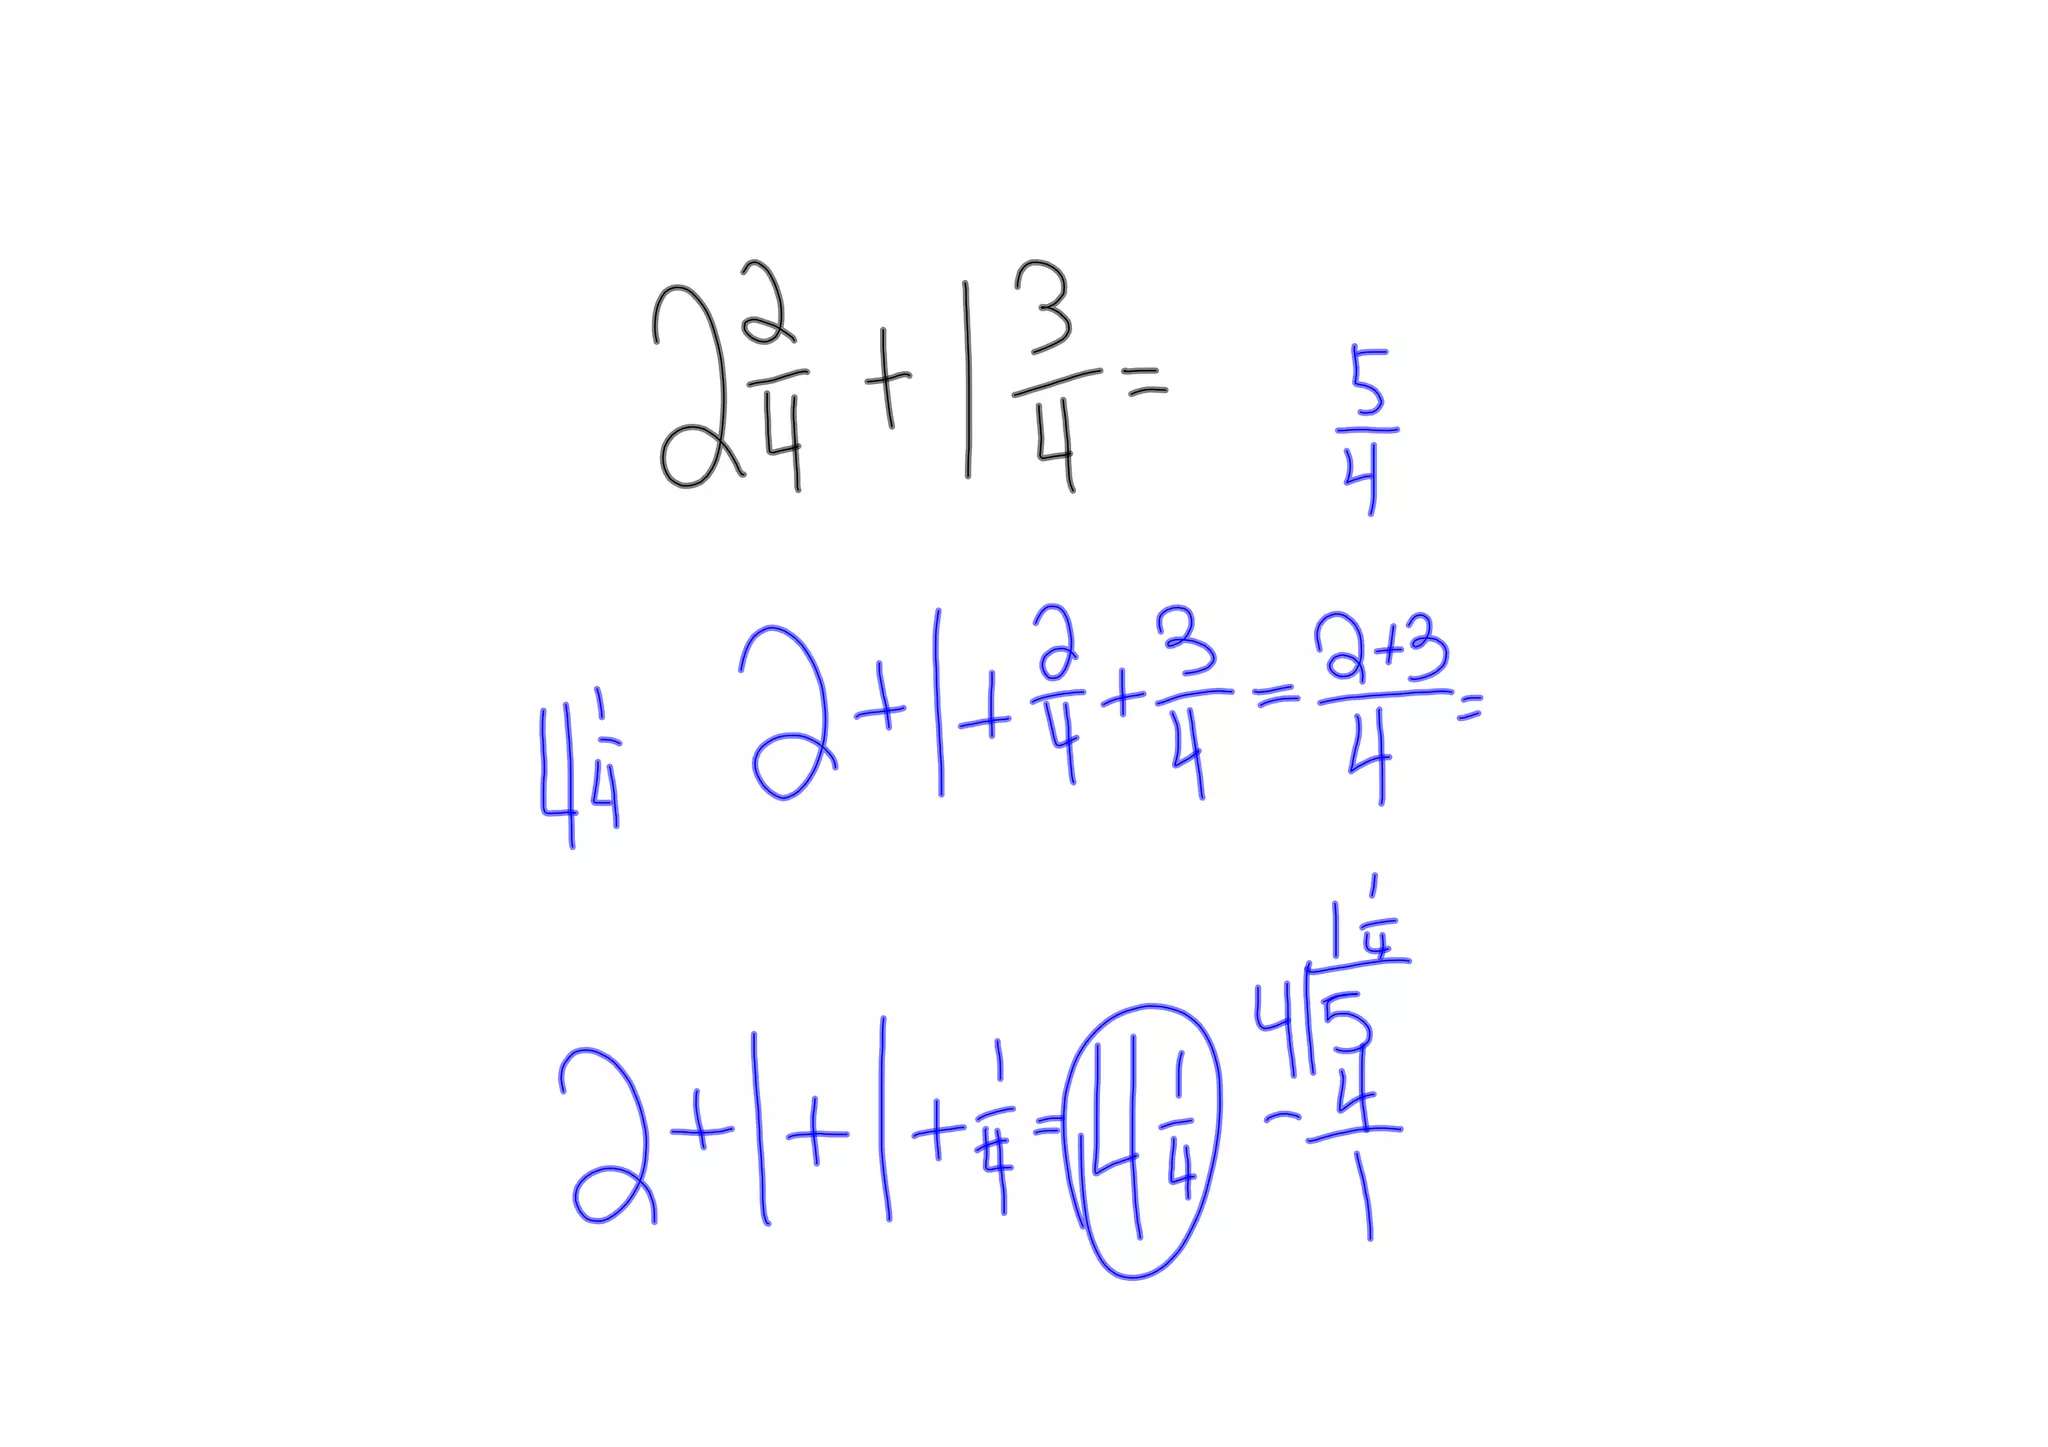 2 2/4 + 1 3/4 =
5/4
4 1/4
2 + 1 + 2/4 + 3/4 = (2+3)/4 =
1 1/4
4 5
- 4
1
2 + 1 + 1 + 1/4 = 4 1/4